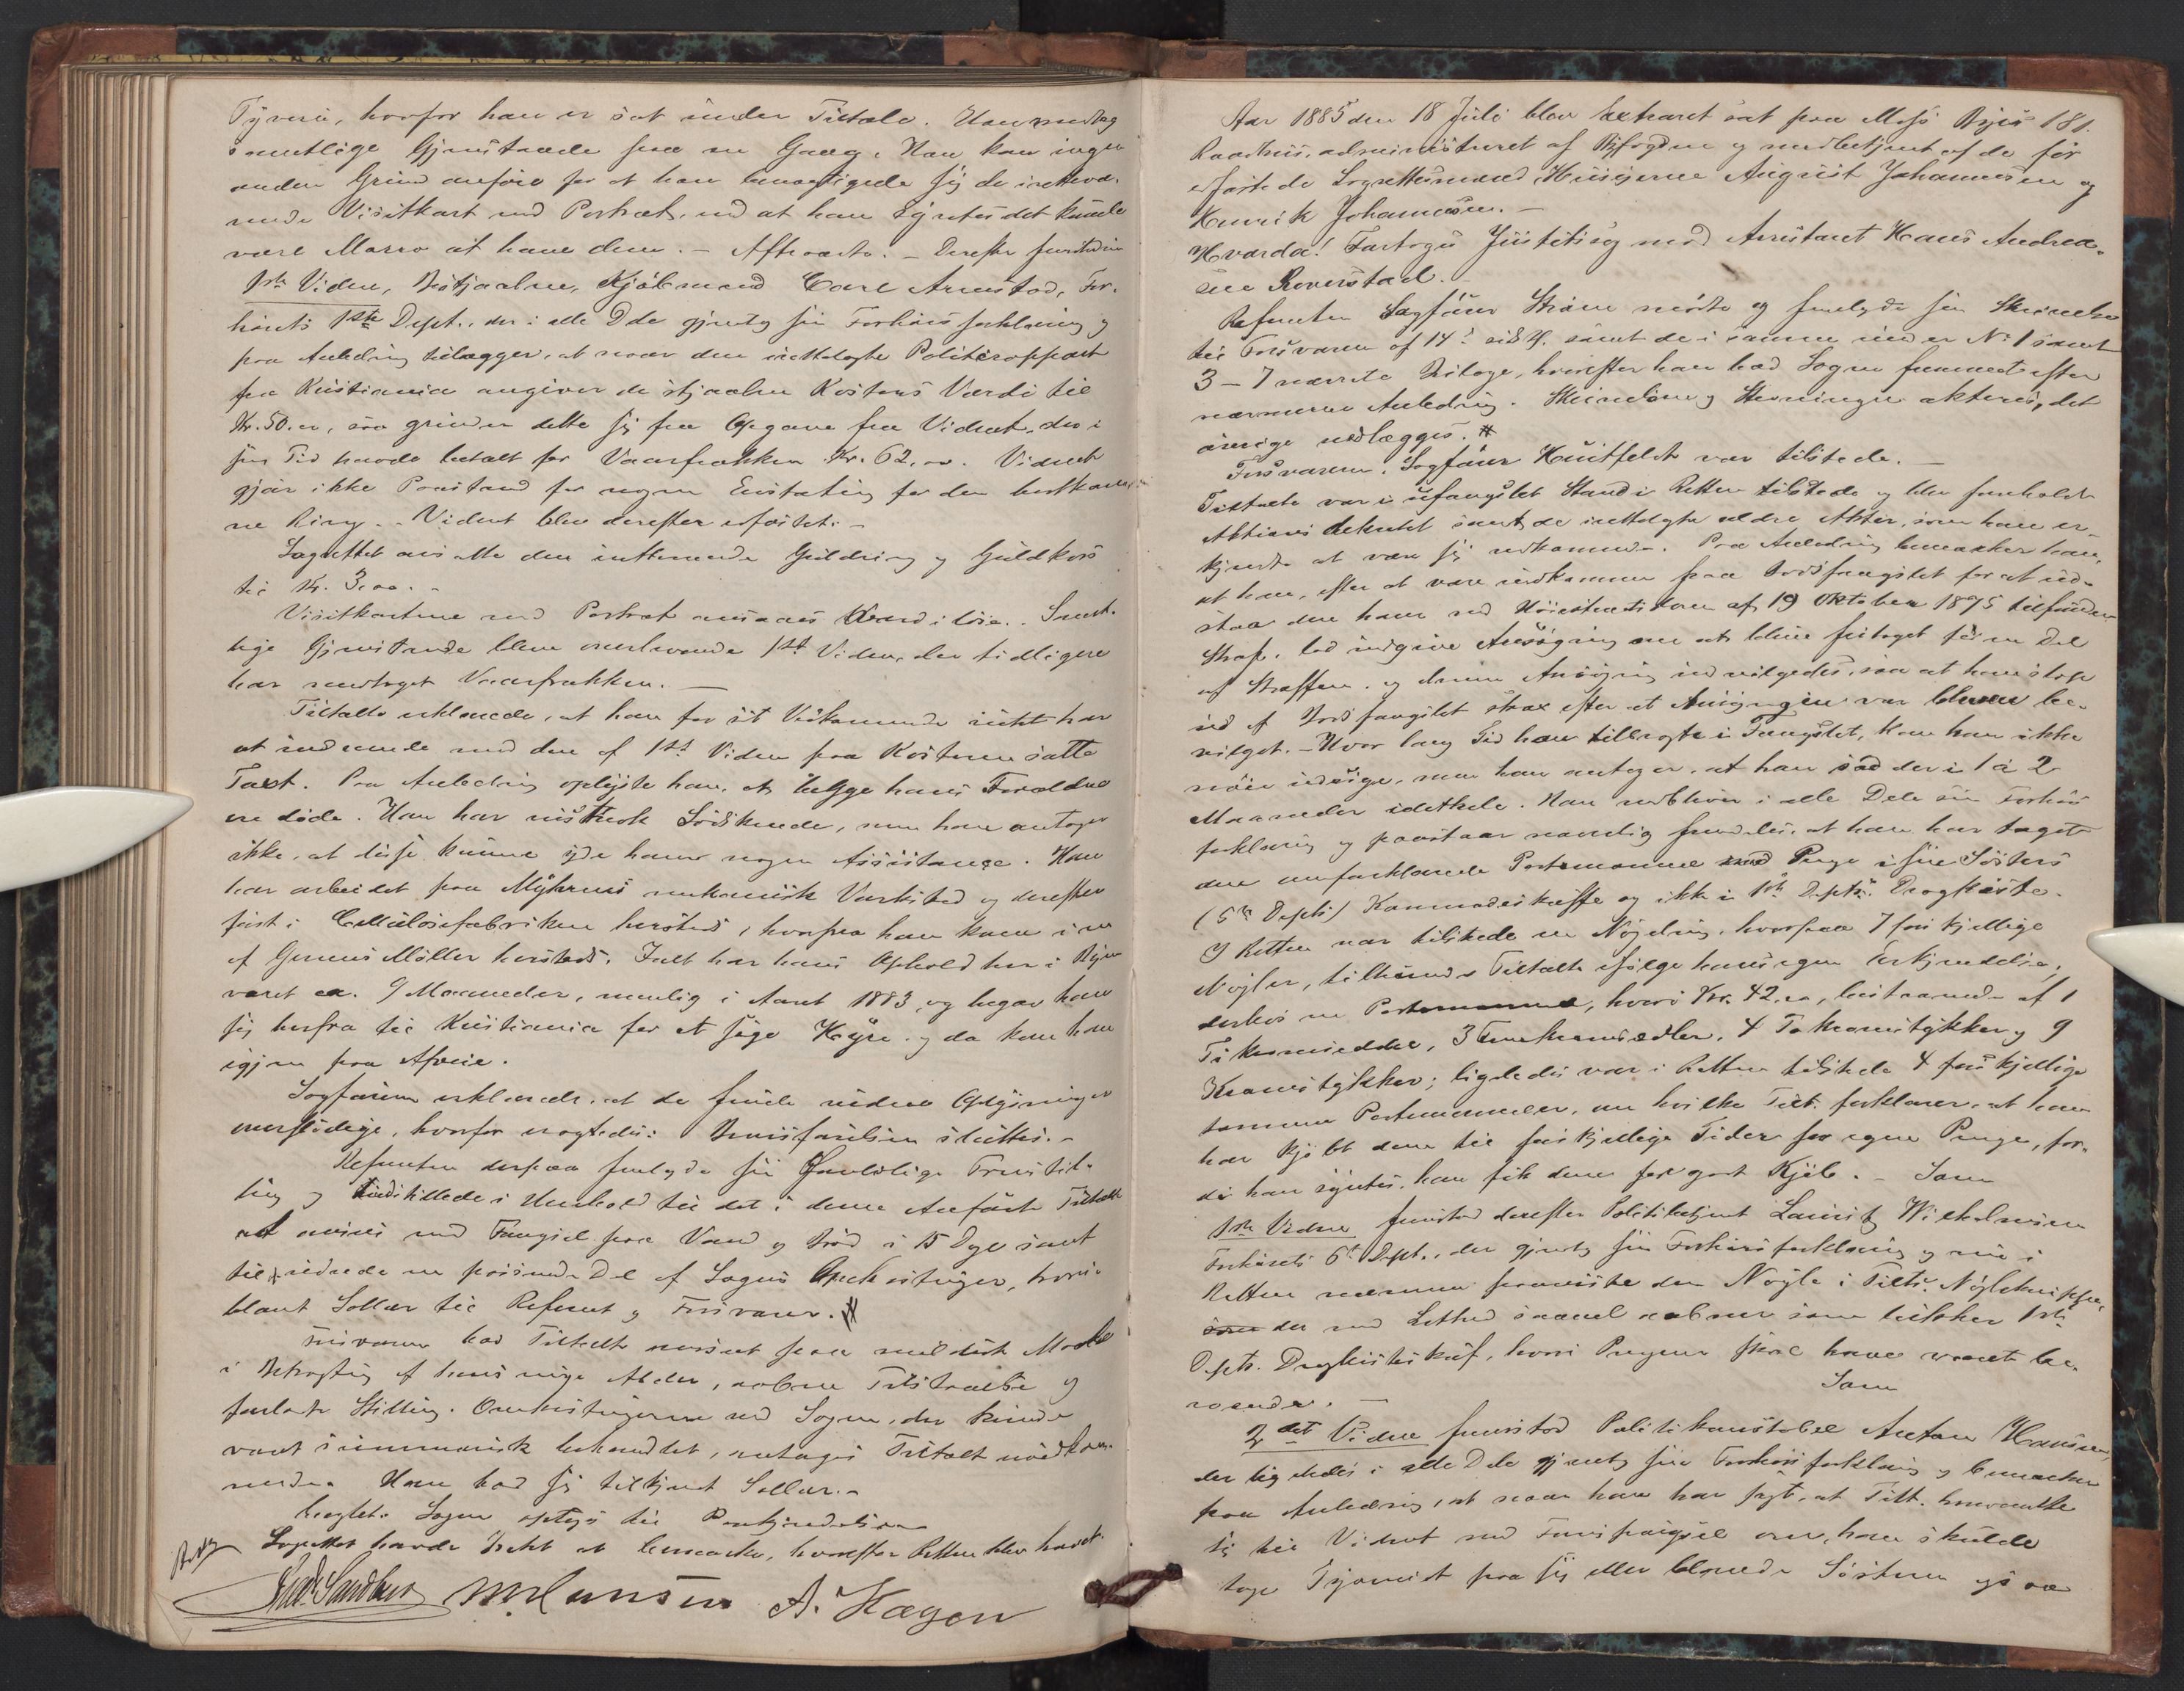 Tyveri, hvorfor han er sat under Tiltale. Han modtog
samtlige Gjenstande paa en Gang. Han kan ingen
anden Grund anføre for at han bemægtigede sig de irettevæ-
rende Visitkort med Portræt, end at han syntes det kunde
være Morro at have dem. – Aftraadte. – Derefter fremstod som
1ste Vidne, Bestjaalne, Kjøbmand Carl Arnestad, For-
hørets 1ste Dept., der i alle Dele gjentog sin Forhørsforklaring og
paa Anledning tilægger, at naar den irettelagte Politirapport
fra Kristiania angiver de stjaalne Kosters Værdi til
Kr. 50.00, saa grunder dette sig fra Opgave fra Vidnet, der i
sin Tid havde betalt for Vaarfrakken Kr. 62,00. Vidnet
gjør ikke Paastand paa nogen Erstatning for den bortkom-
ne Ring. – Vidnet blev derefter edfæstet. –
Lagrettet ansatte den iretteværende Guldring og Guldkors
til Kr. 3,00. –
Visitkortene med Portræt ansaaes Værdiløse. Samt-
lige Gjenstande bleve overleverede 1st Vidne, der tidligere
har modtaget Vaarfrakken. –
Tiltalte erklærede, at han for sit Vedkommende intet har
at indvende mod den af 1st Vidne paa Kosterne satte
Taxt. Paa Anledning oplyste han, at begge hans Forældre
ere døde. Han har vistnok Sødskende, men han antager
ikke, at disse kunne yde ham nogen Assistance. Han
har arbeidet paa Myhrens mekanisk Værksted og derefter
først i Cellulosefabriken hersteds, hvorpaa han kom i
af Møller hersteds. Ialt har hans Ophold her i Byen
været ca. 9 Maaneder, nemlig i Aaret 1883, og begav han
sig herfra til Kristiania for at søge Hyre og da kom han
igjen paa Afveie.
Sagføreren erklærede, at de fandt videre Oplysninger
overflødige, hvorfor vragtedes: Bevisførelsen sluttes. –
Referenten derpaa fremlagde sin skriftlige Fremstil-
ling og indstillede i Henhold til det i denne Anførte Tiltalte
at ansees med Fængsel paa Vand og Brød i 15 Dage samt
til at udrede en passende Del af Sagens Omkostninger, hveri-
blant Sallær til Referent og Forsvarer. #
Forsvareren bad Tiltalte anseet paa mildeste Maade
i Betragtning af hans unge Alder, aabne Tilstaaelse og
forladte Stilling. Omkostningerne ved Sagen, der kunde
været summarisk behandlet, antages Tiltalt uvedkom-
mende. Han bad sig tilkjent Sallær. –
Vragtet: Sagen optages til Paakjendelse
Lagrettet havde Intet at bemærke, hvorefter Retten blev hævet.
M. Hansen A. Hagen
Aar 1885 den 18 Juli blev Extraret sat paa Moss Byes 181.
Raadhus, administreret af Byfogden og medbetjent af de før
edfæstede Lagrettesmænd, Huseierne August Johannesen og
Henrik Johannesen. –
Hvorda! Foretoges Justitssag mod Arrestanten Hans Andrea-
sen Roverstad. –
Referenten Sagfører Strøm mødte og fremlagde sin Skrivelse
til Forsvareren af 14de sidstl. samt de i samme under No 1 samt
3 – 7 nævnte Bilage, hvorefter han bad Sagen fremmet efter
nærmere Anledning. Skrivelsen og Stevningen akteres, det
øvrige vedlægges. #
Forsvareren, Sagfører Huitfeldt var tilstede. –
Tiltalte var i ufængslet Stand i Retten tilstede og blev foreholdt
Aktions Dekretet samt de irettelagte ældre Akter, som han er-
kjendte at være sig vedkommende. Paa Anledning bemærker han,
at han, efter at være indkommen paa Bodsfængslet for at ud-
staa den ham ved Høiesteretsdom af 19 Oktober 1875 tilfundne
Straf, lod indgive Ansøgning om at blive fritaget for en Del
af Straffen, og denne Ansøgning indvilgedes, saa at han slap
ud af Bodsfængslet strax efter at Ansøgningen var bleven be-
vilget. – Hvor lang Tid han tilbragte i Fængslet, kan han ikke
nøie udsige, men han antager, at han sad der i 1 à 2
Maaneder idethele. Han vedbliver i alle Dele sin Forhørs
forklaring og paastaar navnlig fremdeles, at han har taget
den omforklarede Portemonnæ med Penge i sin Søsters
(5te Depts) Kommodeskuffe og ikke i 1ste Depts. Dragkiste.
I Retten var tilstede en Nøglering, hvorpaa 7 forskjellige
Nøgler, tilhørende Tiltalte ifølge hans egen Erkjendelse,
derhos en Portemonnæ, hvori Kr. 42,00, bestaaende af 1
Ti kroneseddel, 3 Femkronesedler, 4 To kronestykker og 9
Kronestykker; ligeledes var i Retten tilstede 4 forskjellige
tomme Portemonnæer, om hvilke Tilt. forklarer, at han
har kjøbt dem til forskjellige Tider for egne Penge, for-
di han syntes, han fik dem for godt Kjøb. – Som
1ste Vidne fremstod derefter Politibetjent Lauritz Wilhelmsen
Forhørets 6te Dept., der gjentog sin Forhørsforklaring og nu i
Retten nærmere paaviste den Nøgle i Tilts. Nøgleknippe,
som der med Lethed saavel aabner som lukker 1ste
Depts. Dragkisteskuf, hvori Pengene skal have været be-
roende. – Som
2det Vidne fremstod Politikonstabel Anton Hansen,
der ligeledes i alle Dele gjentog sin Forhørsforklaring og bemærker
paa Anledning, at naar han har sagt, at Tilt. henvendte
sig til Vidnet med Forespørgsel om, han skulde
tage Tyveriet paa sig eller blande Søsteren ogsaa